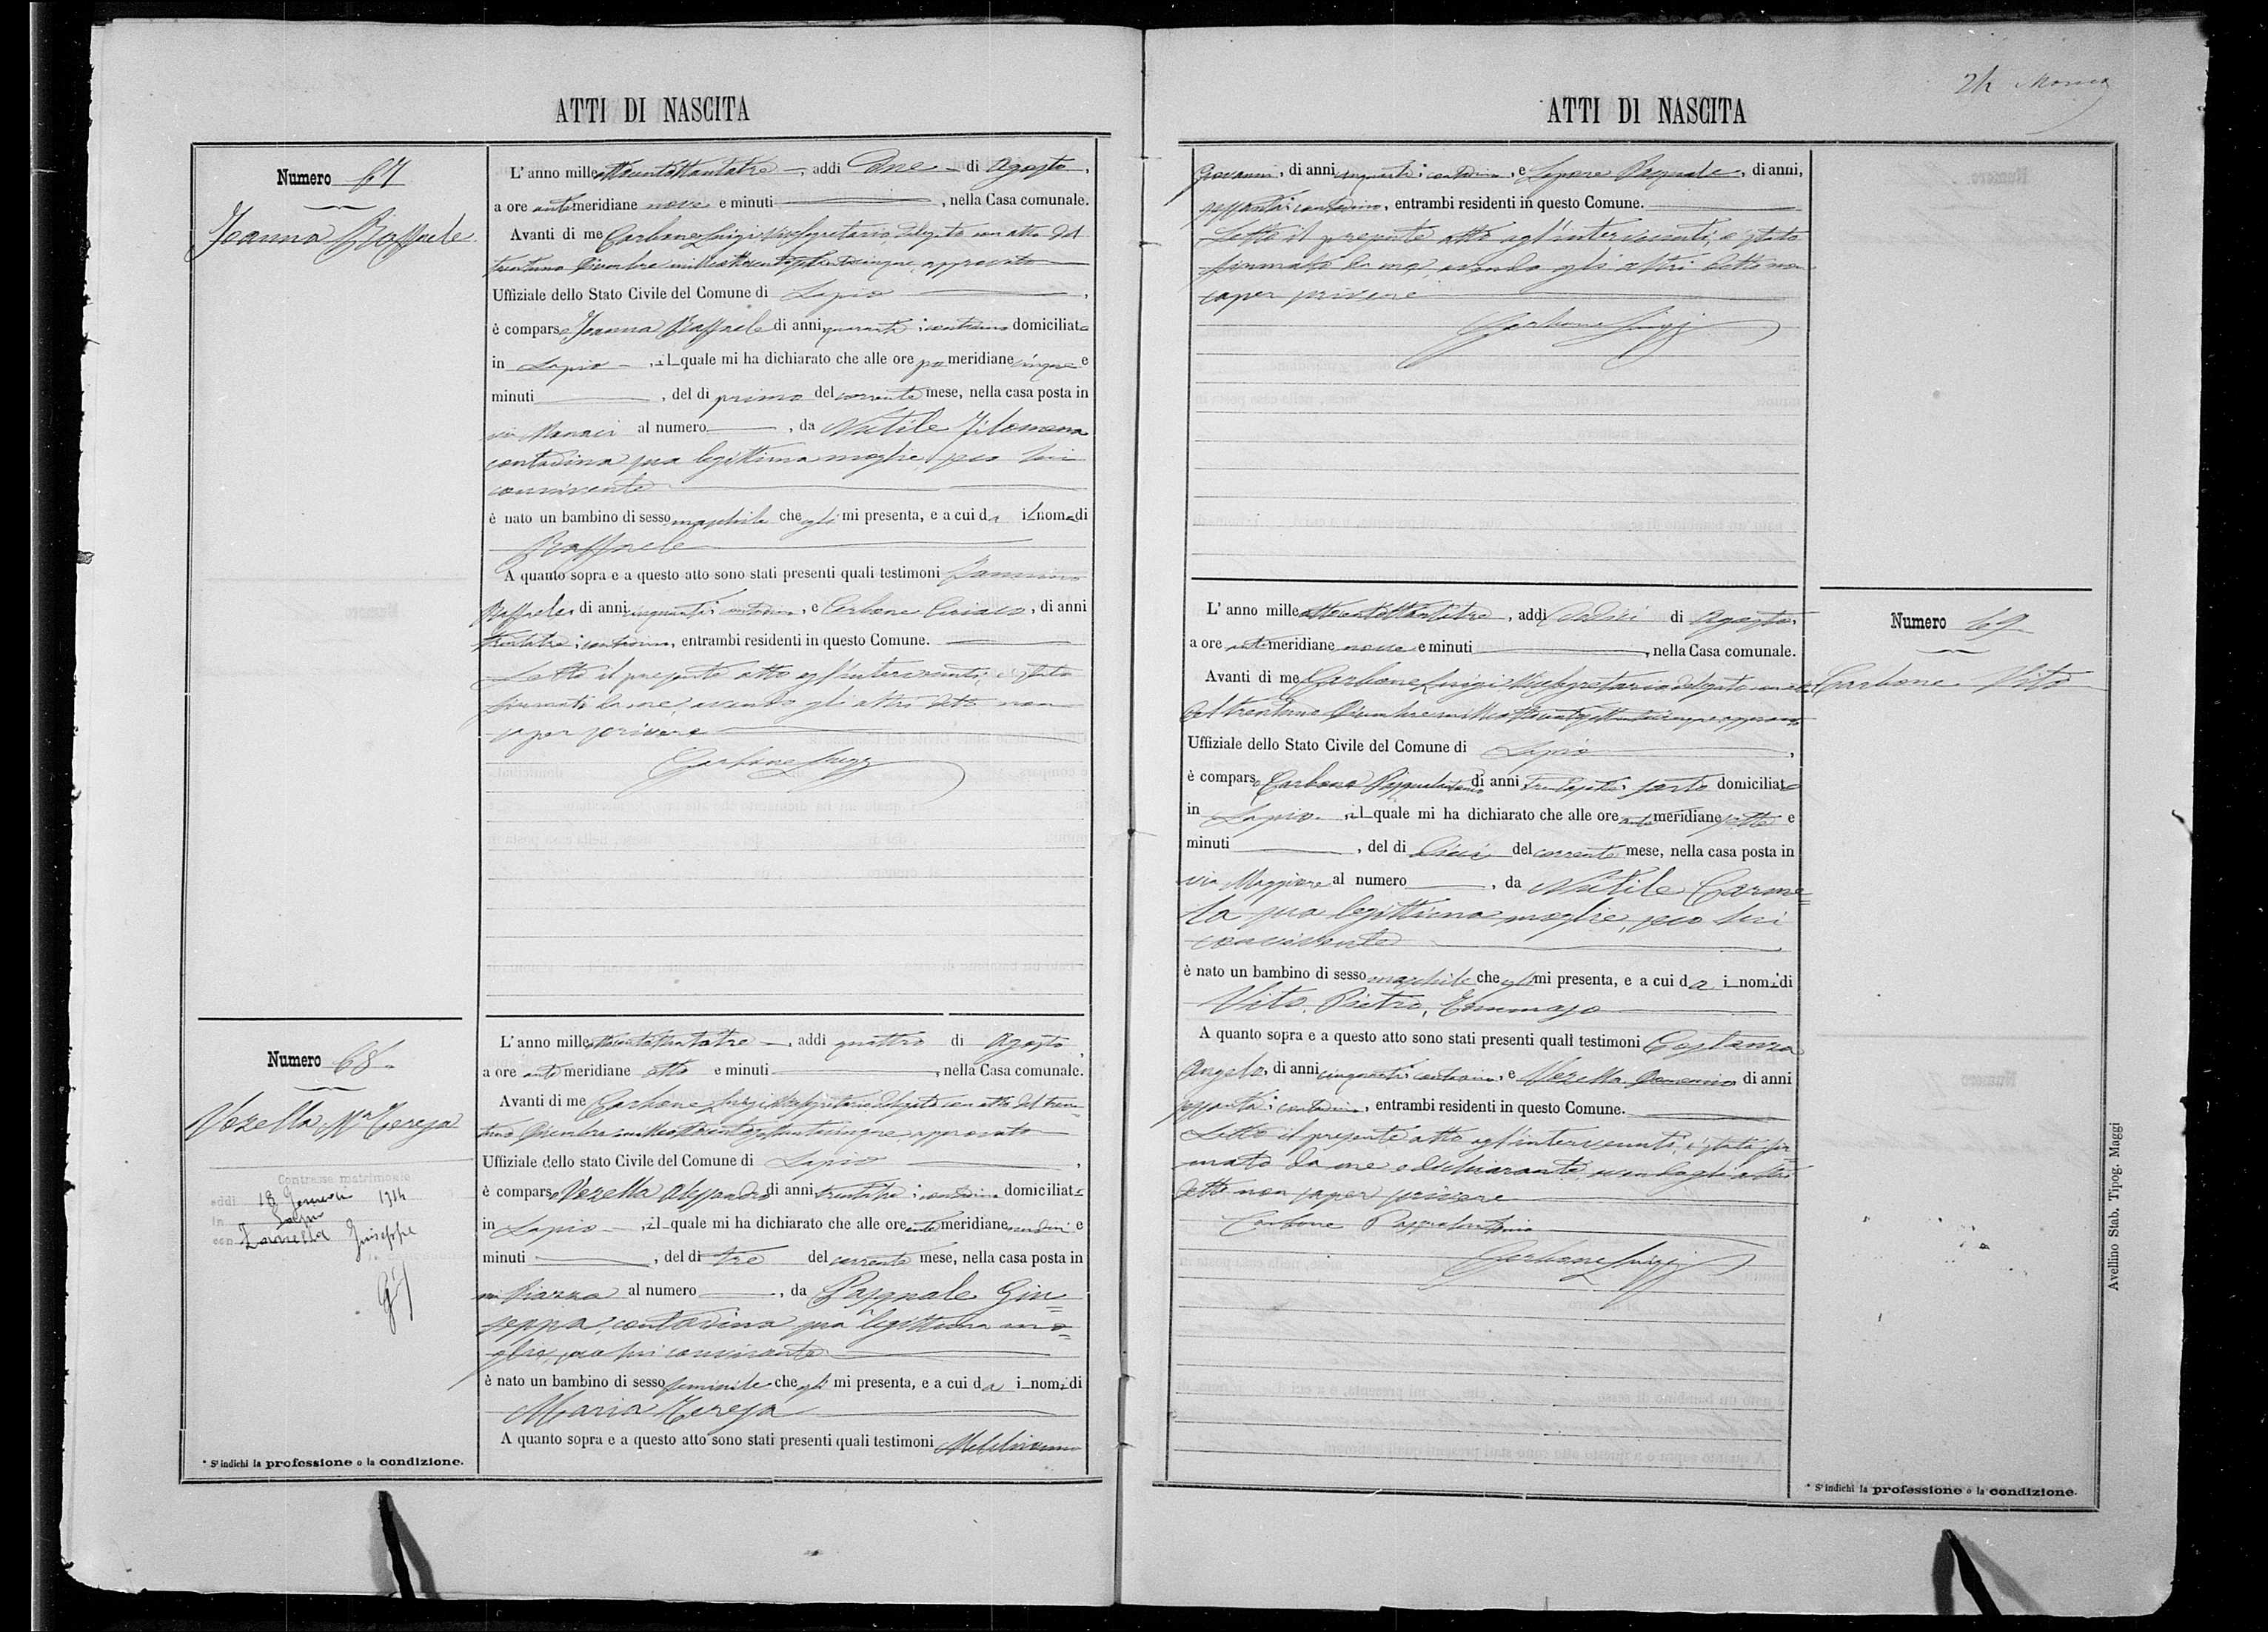 ATTI DI NASCITA
Numero 67
Ioanna Raffaele
L'anno milleottocentottantatre, addi due di Agosto,
a ore antimeridiane nove e minuti , nella Casa comunale.
Avanti di me Carbone Luigi Vicesegretario, delegato con atto del
trentuno Dicembre milleottocentosettantacinque, approvato
Uffiziale dello Stato Civile del Comune di Lapio ,
è comparso Ioanna Raffaele di anni quaranta; contadino domiciliato
in Lapio , il quale mi ha dichiarato che alle ore pomeridiane cinque e
minuti , del di primo del corrente mese, nella casa posta in
via al numero , da Nutile Filomena
contadina sua legittima moglie, seco lui
convivente
è nato un bambino di sesso maschile che egli mi presenta, e a cui da il nome di
Raffaele
A quanto sopra e a questo atto sono stati presenti quali testimoni
Raffaele, di anni cinquanta; contadino, e Carbone Ciriaco, di anni
trentatre; contadino, entrambi residenti in questo Comune.
Letto il presente atto agl'intervenuti, è stato
firmato da me, avendo gli altri detto non
saper scrivere
Carbone Luigi
Numero 68
Vozella Mª Teresa
Contrasse matrimonio
addi 18 Gennaio 1914
in Lapio
con Zarrella Giuseppe
L'anno milleottocentottantatre, addi quattro di Agosto,
a ore antemeridiane otto e minuti , nella Casa comunale.
Avanti di me Carbone Luigi Vicesegretario delegato con atto del tren-
tuno Dicembre milleottocentosettantacinque approvato
Uffiziale dello stato Civile del Comune di Lapio ,
è comparso Vozella Alessandro di anni trentatre; contadino domiciliato
in Lapio , il quale mi ha dichiarato che alle ore antemeridiane undici e
minuti , del di tre del corrente mese, nella casa posta in
via Piazza al numero , da Pasquale Giu=
seppa, contadina sua legittima mo=
glie, seco lui convivente
è nato un bambino di sesso feminile che egli mi presenta, e a cui da i nomi di
Maria Teresa
A quanto sopra e a questo atto sono stati presenti quali testimoni
* S'indichi la professione o la condizione.
ATTI DI NASCITA
Giovanni, di anni cinquanta; contadino, e Lepore Pasquale, di anni,
sessanta; contadino, entrambi residenti in questo Comune.
Letto il presente atto agl'intervenuti, è stato
firmato da me, avendo gli altri detto non
saper scrivere
Carbone Luigi
Numero 69
Carbone Vito
L'anno milleottocentottantatre, addi dodici di Agosto,
a ore antemeridiane nove e minuti , nella Casa comunale.
Avanti di me Carbone Luigi Vicesegretario delegato con atto
del trentuno Dicembre milleottocentosettantacinque approvato
Uffiziale dello Stato Civile del Comune di Lapio ,
è comparso Carbone Pasqualantonio di anni trentasette; sarto domiciliato
in Lapio , il quale mi ha dichiarato che alle ore antemeridiane sette e
minuti , del di dieci del corrente mese, nella casa posta in
via Maggiore al numero , da Nutile Carme=
la sua legittima moglie, seco lui
convivente
è nato un bambino di sesso maschile che egli mi presenta, e a cui da i nomi di
Vito, Pietro, Tommaso
A quanto sopra e a questo atto sono stati presenti quali testimoni Costanza
Angelo, di anni cinquanta; contadino, e Vozella Domenico di anni
sessanta; contadino, entrambi residenti in questo Comune.
Letto il presente atto agl'intervenuti, è stato fir-
mato da me e dichiarante, avendo gli altri
detto non saper scrivere
Carbone Pasqualantonio
Carbone Luigi
* S'indichi la professione o la condizione.
Avellino Stab. Tipog. Maggi